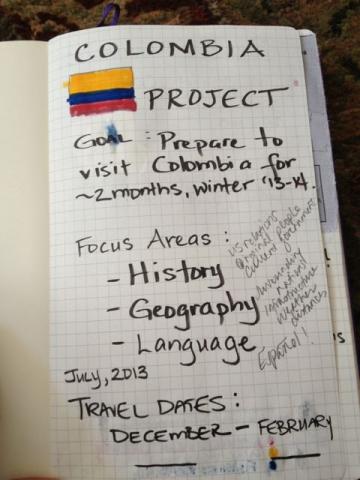 COLOMBIA
PROJECT
GOAL : Prepare to
visit Colombia for
~2 months, winter '13-14.
Focus Areas :
- History
US relations
original people
current government
- Geography
surrounding
natural
infrastructure
weather
distances
- Language
Español!
July, 2013
TRAVEL DATES :
DECEMBER - FEBRUARY